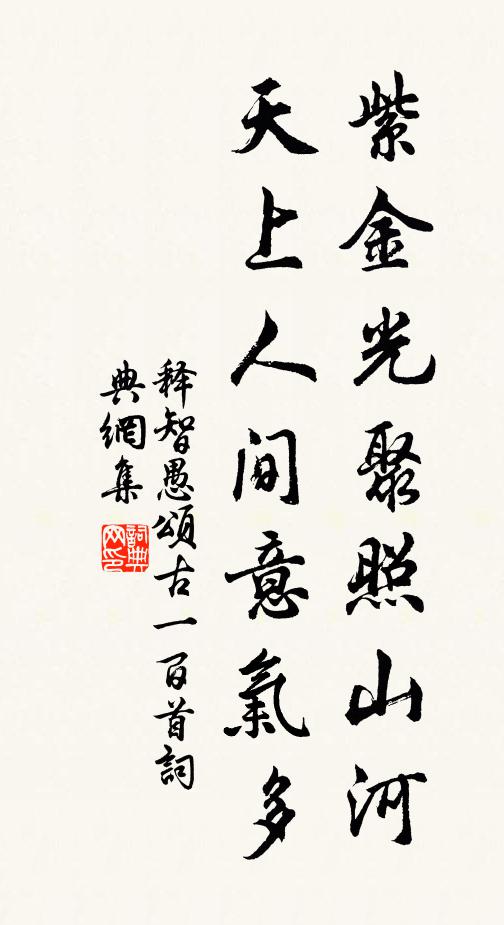 紫金光聚照山河
天上人间意氣多
释智愚頌古一百首詞
典網集
詞典网印